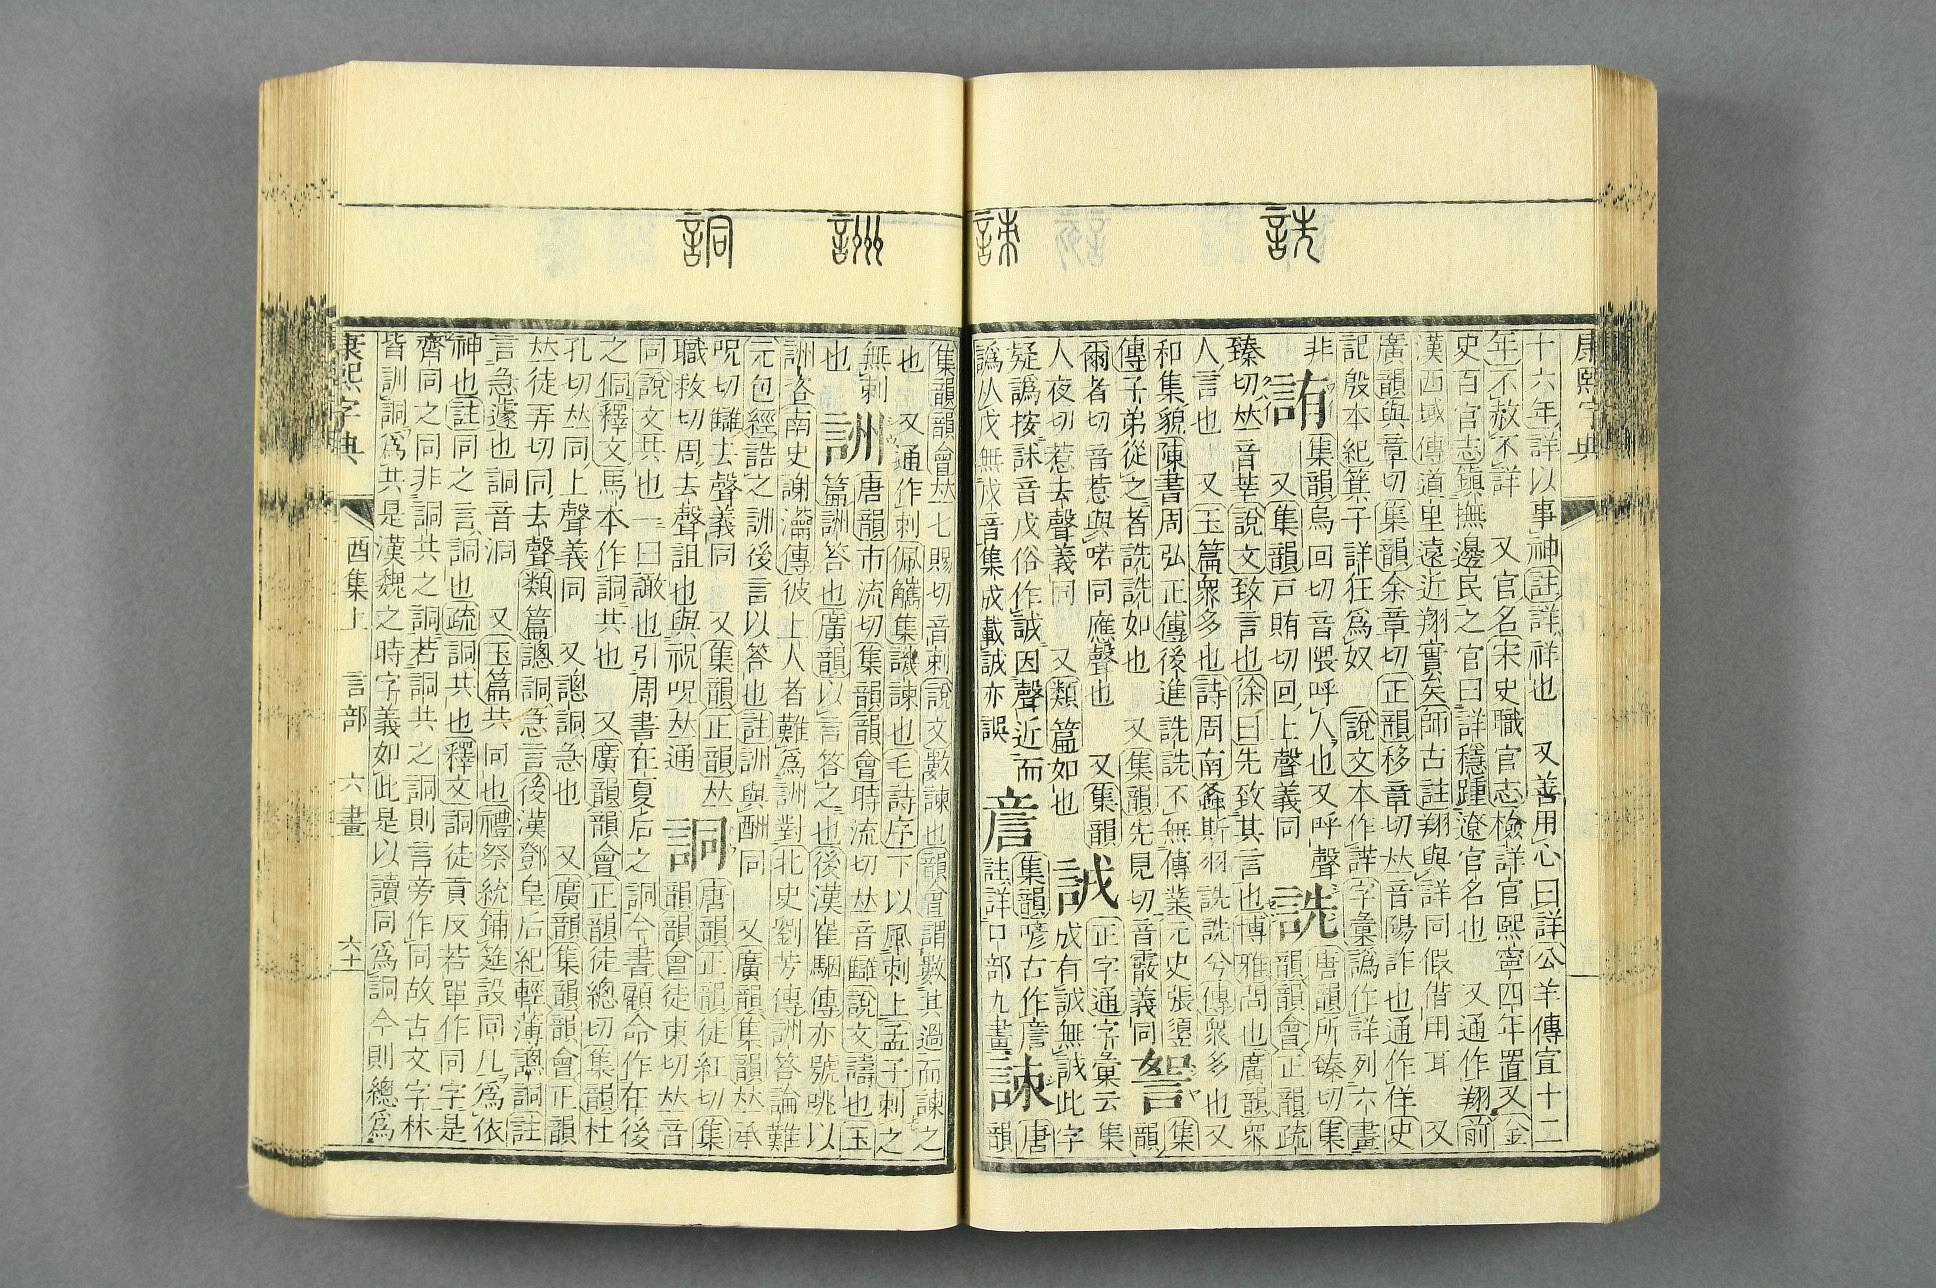 詵 諫 詶 詷
康熙字典
十六年詳以事神註詳祥也 又善用心曰詳公羊傳宣十二
年不赦不詳 又官名宋史職官志檢詳官熙寧四年置又金
史百官志鎮撫邊民之官曰詳穩踵遼官名也 又通作翔前
漢西域傳道里遠近翔實矣師古註翔與詳同假借用耳 又
廣韻與章切集韻余章切正韻移章切𠀤音陽詐也通作佯史
記殷本紀箕子詳狂爲奴 說文本作字彙譌作詳列六畫
非 詴 集韻烏回切音隈呼人也又呼聲 詵 唐韻所臻切集
又集韻戸賄切回上聲義同 韻韻會正韻疏
臻切𠀤音莘說文致言也徐曰先致其言也博雅問也廣韻眾
人言也 又玉篇眾多也詩周南螽斯羽詵詵兮傳眾多也又
和集貌陳書周弘正傳後進詵詵不無傳業元史張傳 集
傳子弟從之者詵詵如也 又集韻先見切音霰義同 韻
爾者切音惹與喏同應聲也 又集韻 誠 正字通字彙云集
人夜切惹去聲義同 又類篇如也 成有誠無誠此字
疑譌按訹音戌俗作誠因聲近而 集韻諺古作 諫 唐
譌从戊無戌音集成載誠亦誤 註詳口部九畫 韻
集韻韻會𠀤七賜切音刺說文數諫也韻會謂數其過而諫之
也 又通作刺佩觿集譏諫也毛詩序下以風刺上孟子刺之
無刺 詶 唐韻市流切集韻韻會時流切𠀤音讎說文譸也玉
也 篇詶答也廣韻以言答之也後漢崔駰傳亦號咷以
詶咨南史謝瀹傳彼上人者難爲詶對北史劉芳傳詶答論難
元包經誥之詶後言以答也註詶與酬同 又廣韻集韻𠀤承
呪切讎去聲義同 又集韻正韻𠀤 詷 唐韻正韻徒紅切集
職救切周去聲詛也與祝呪𠀤通 韻韻會徒東切𠀤音
同說文共也一曰譀也引周書在夏后之詷今書顧命作在後
之侗釋文馬本作詷共也 又廣韻韻會正韻徒總切集韻杜
孔切𠀤同上聲義同 又謥詷急也 又廣韻集韻韻會正韻
𠀤徒弄切同去聲類篇謥詷急言後漢鄧皇后紀輕薄謥詷註
言急遽也詷音洞 又玉篇共同也禮祭統鋪筵設同几爲依
神也註同之言詷也疏詷共也釋文詷徒貢反若單作同字是
齊同之同非詷共之詷若詷共之詷則言旁作同故古文字林
皆訓詷爲共是漢魏之時字義如此是以讀同爲詷今則總爲
康熙字典 酉集上 言部 六畫 六十